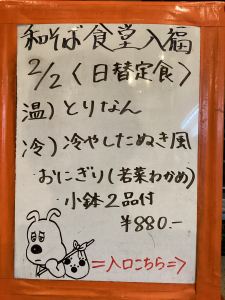 和そば食堂入福
2/2〈日替定食〉
温)とりなん
冷)冷やしたぬき風
おにぎり(若菜わかめ)
小鉢2品付
¥880.-
=入口こちら=>